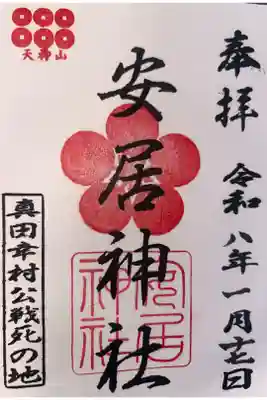 奉拝
令和八年一月十七日
安居神社
天神山
安居神社
真田幸村公戦死の地